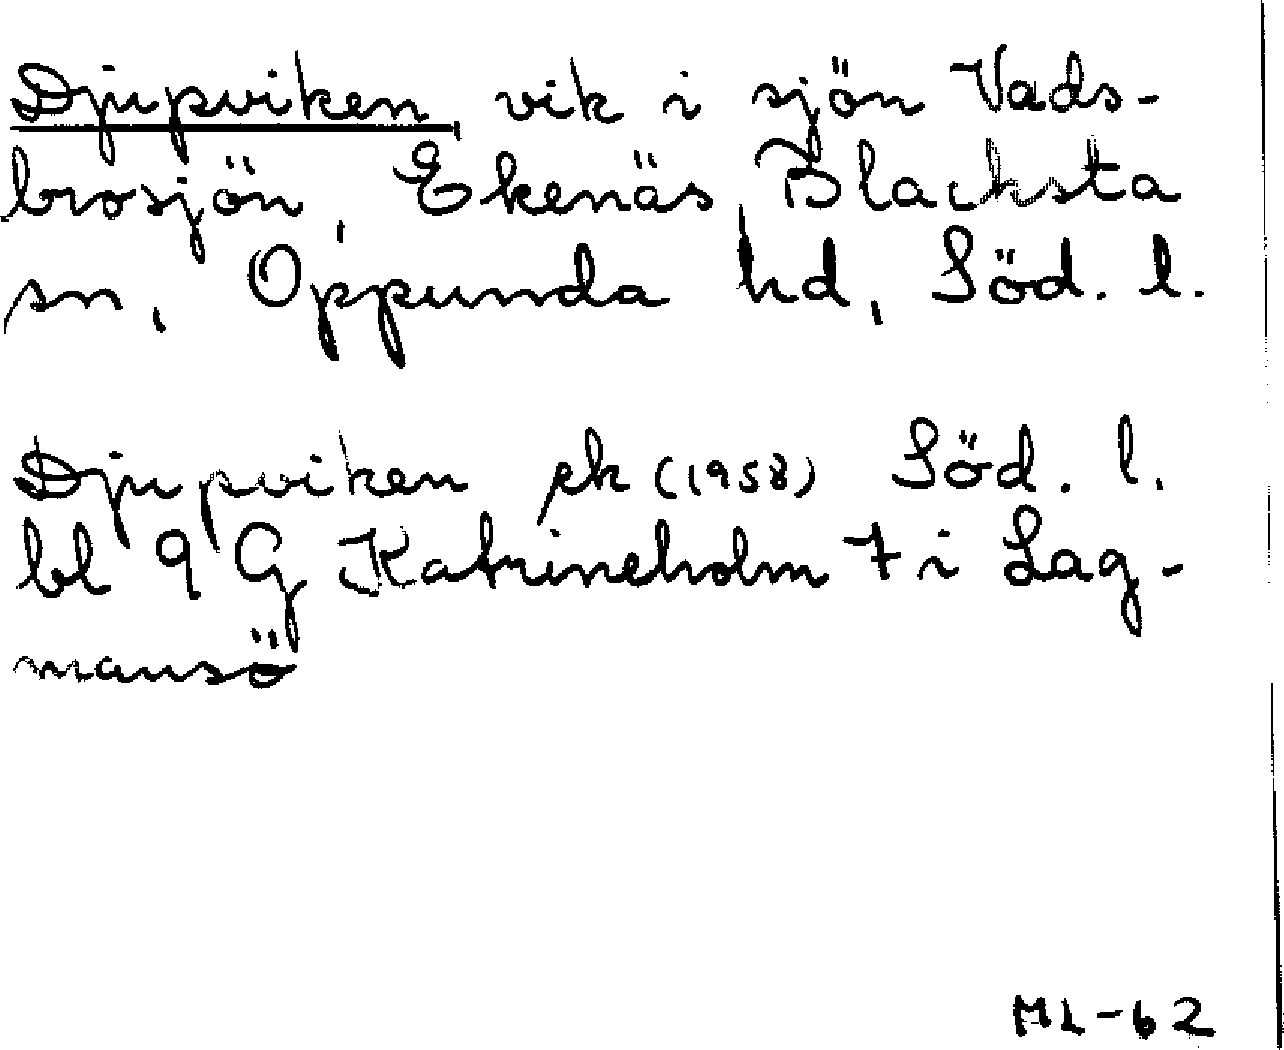 Djupviken, vik i sjön Vads-
brosjön, Ekenäs, Blacksta
sn, Oppunda hd, Söd. l.
Djupviken ek (1958) Söd. l.
bl 9 G Katrineholm 7 i Lag-
mansö
ML-62